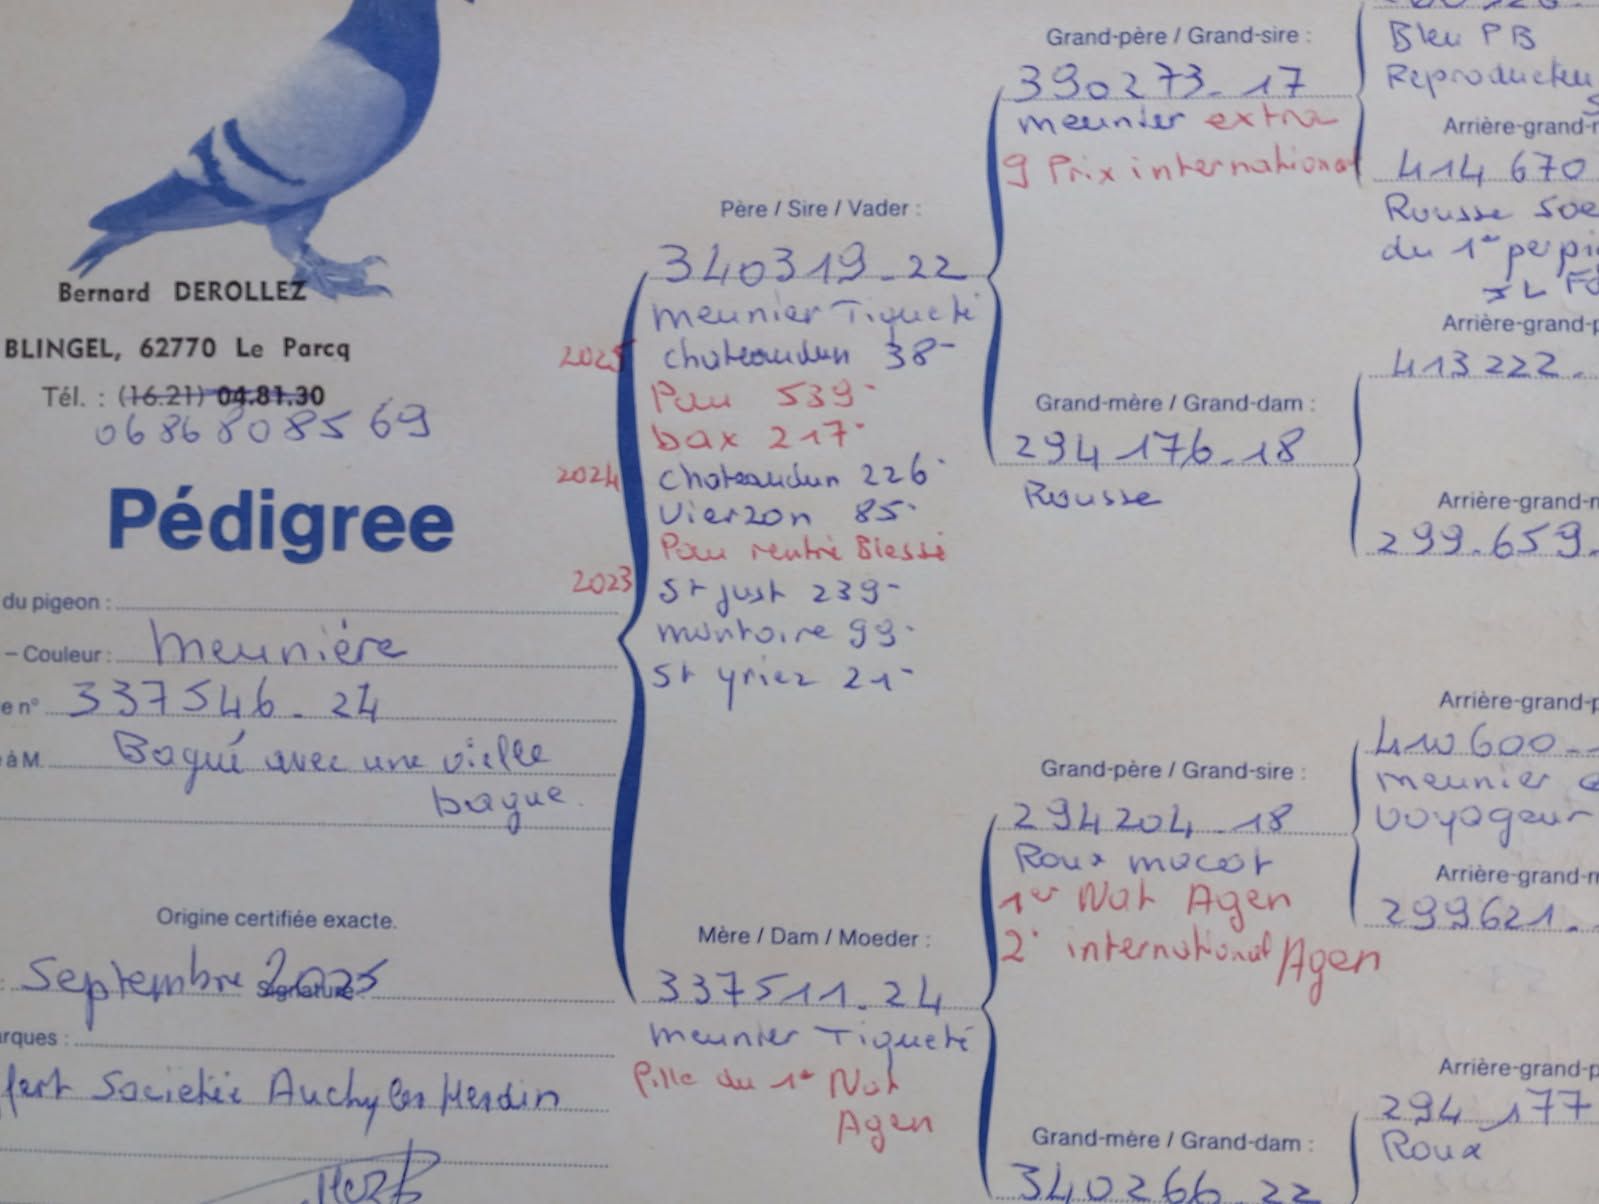 Bernard DEROLLEZ
BLINGEL, 62770 Le Parcq
Tél. : (16.21) 04.81.30
06 86 80 85 69
Pédigree
du pigeon :
– Couleur : Meunière
e n° 337546-24
à M. Bagué avec une vielle
bague.
Origine certifiée exacte.
Septembre 2025
Signature
arques :
Societée Auchy les Hesdin
Père / Sire / Vader :
340319-22
meunier Tiqueté
2025 chateaudun 38-
Pau 539-
bax 217-
2024 chateaudun 226-
Vierzon 85-
Pau rentré Blessé
2023 St just 239-
montoire 99-
St yriez 21-
Mère / Dam / Moeder :
337511-24
meunier Tiqueté
Fille du 1er Nat
Agen
Grand-père / Grand-sire :
390273-17
meunier extra
9 Prix international
Grand-mère / Grand-dam :
294176-18
Rousse
Grand-père / Grand-sire :
294204-18
Roux macot
1er Nat Agen
2e international Agen
Grand-mère / Grand-dam :
340266-22
Bleu PB
Reproducteu
Arrière-grand-m
414670
Rousse Soe
du 1er perpi
Arrière-grand-p
413222-
Arrière-grand-m
299.659-
Arrière-grand-p
410600-
meunier
voyageur
Arrière-grand-m
299621-
Arrière-grand-p
294177
Roux